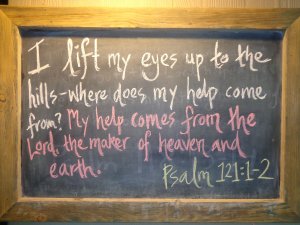 I lift my eyes up to the
hills-where does my help come
from? My help comes from the
Lord, the maker of heaven and
earth.
Psalm 121:1-2